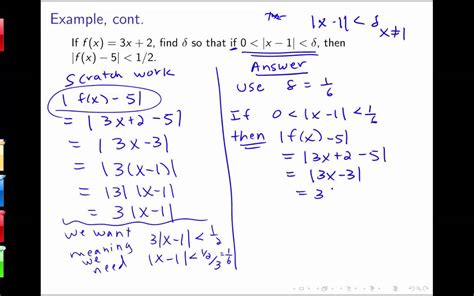 Example, cont.
|x-1| < δ
x≠1
If f(x) = 3x + 2, find δ so that if 0 < |x − 1| < δ, then
|f(x) − 5| < 1/2.
Scratch work
|f(x)-5|
= |3x+2-5|
= |3x-3|
= |3(x-1)|
= |3| |x-1|
= 3|x-1|
we want 3|x-1| < 1/2
meaning
we need |x-1| < 1/2/3 = 1/6
Answer
Use δ = 1/6
If 0 < |x-1| < 1/6
then |f(x)-5|
= |3x+2-5|
= |3x-3|
= 3